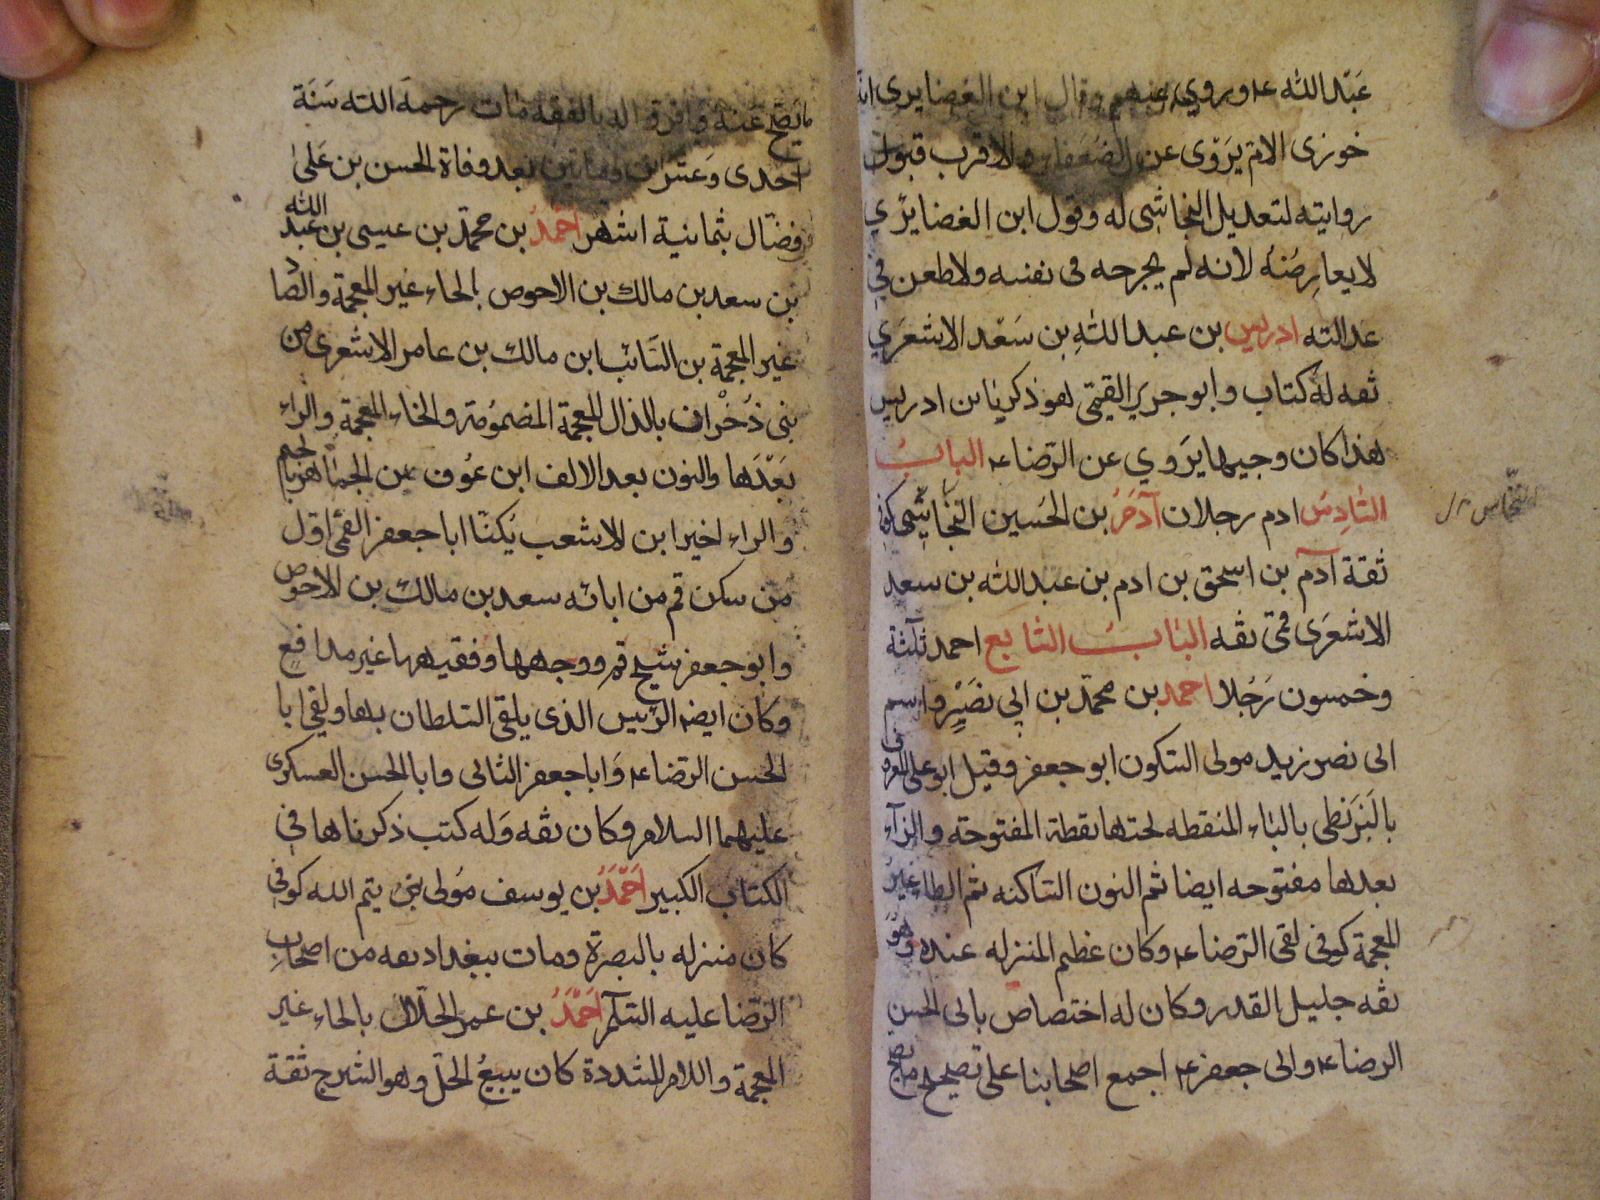 عبد الله ع وروي عنهم وقال ابن الغضايري انه
خوزى الام يروى عن الضعفاء والاقرب قبول
روايته لتعديل النجاشي له وقول ابن الغضايري
لا يعارضه لانه لم يجرحه فى نفسه ولا طعن في
عدالته ادريس بن عبد الله بن سعد الاشعري
ثقه له كتاب وابو جرير القمي هو ذكريا بن ادريس
هذا كان وجيها يروي عن الرضا ع الباب
السادس ادم رجلان آدم بن الحسين النجاشي كوفي
ثقة آدم بن اسحق بن ادم بن عبد الله بن سعد
الاشعرى قمى ثقه الباب السابع احمد ثلثة
وخمسون رجلا احمد بن محمد بن ابي نصير واسم
ابى نصر زيد مولى السكون ابو جعفر وقيل ابو على المعروف
بالبزنطى بالباء المنقطه تحتها نقطة المفتوحة والزآء
بعدها مفتوحه ايضا ثم النون الساكنه ثم الطاء غير
المعجمة كوفى لقى الرضا ع وكان عظيم المنزله عنده وهو
ثقه جليل القدر وكان له اختصاص بابى الحسن
الرضا ع وابى جعفر ع اجمع اصحابنا على تصحيح ما يصح
ما يصح عنه واقروا له بالفقه مات رحمه الله سنة
احدى وعشرين وماتين بعد وفاة الحسن بن على
بن فضال بثمانية اشهر احمد بن محمد بن عيسى بن عبد الله
بن سعد بن مالك بن الاحوص بالحاء غير المعجمة والصاد
غير المعجمة بن السائب ابن مالك بن عامر الاشعرى من
بنى ذخران بالذال المعجمة المضمومة والخاء المعجمة والراء
بعدها والنون بعد الالف ابن عوف بن الجماهر بالجيم
والراء اخيرا ابن الاشعب يكنا ابا جعفر القمى اول
من سكن قم من ابائه سعد بن مالك بن الاحوص
وابو جعفر شيخ قم ووجهها وفقيهها غير مدافع
وكان ايضا الرئيس الذى يلقى السلطان بها ولقى ابا
الحسن الرضا ع وابا جعفر الثانى وابا الحسن العسكرى
عليهما السلام وكان ثقه وله كتب ذكرناها في
الكتاب الكبير احمد بن يوسف مولى بنى تيم الله كوفي
كان منزله بالبصرة ومات ببغداد ثقه من اصحاب
الرضا عليه السلم احمد بن عمر الحلال بالحاء غير
المعجمة واللام المشددة كان يبيع الحل وهو الشيرج ثقة